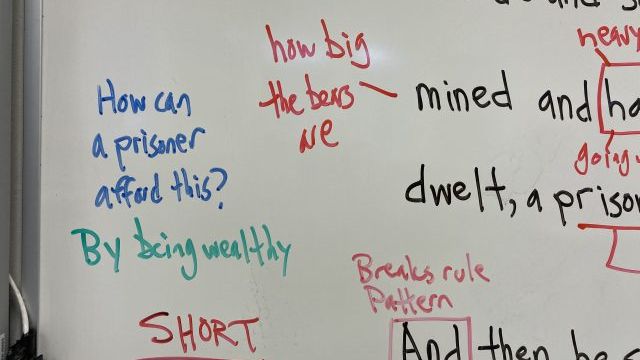 how big
the bears
are
heavy
mined and
going
How can
a prisoner
afford this?
dwelt, a prison
By being wealthy
Breaks rule
Pattern
SHORT
And then he